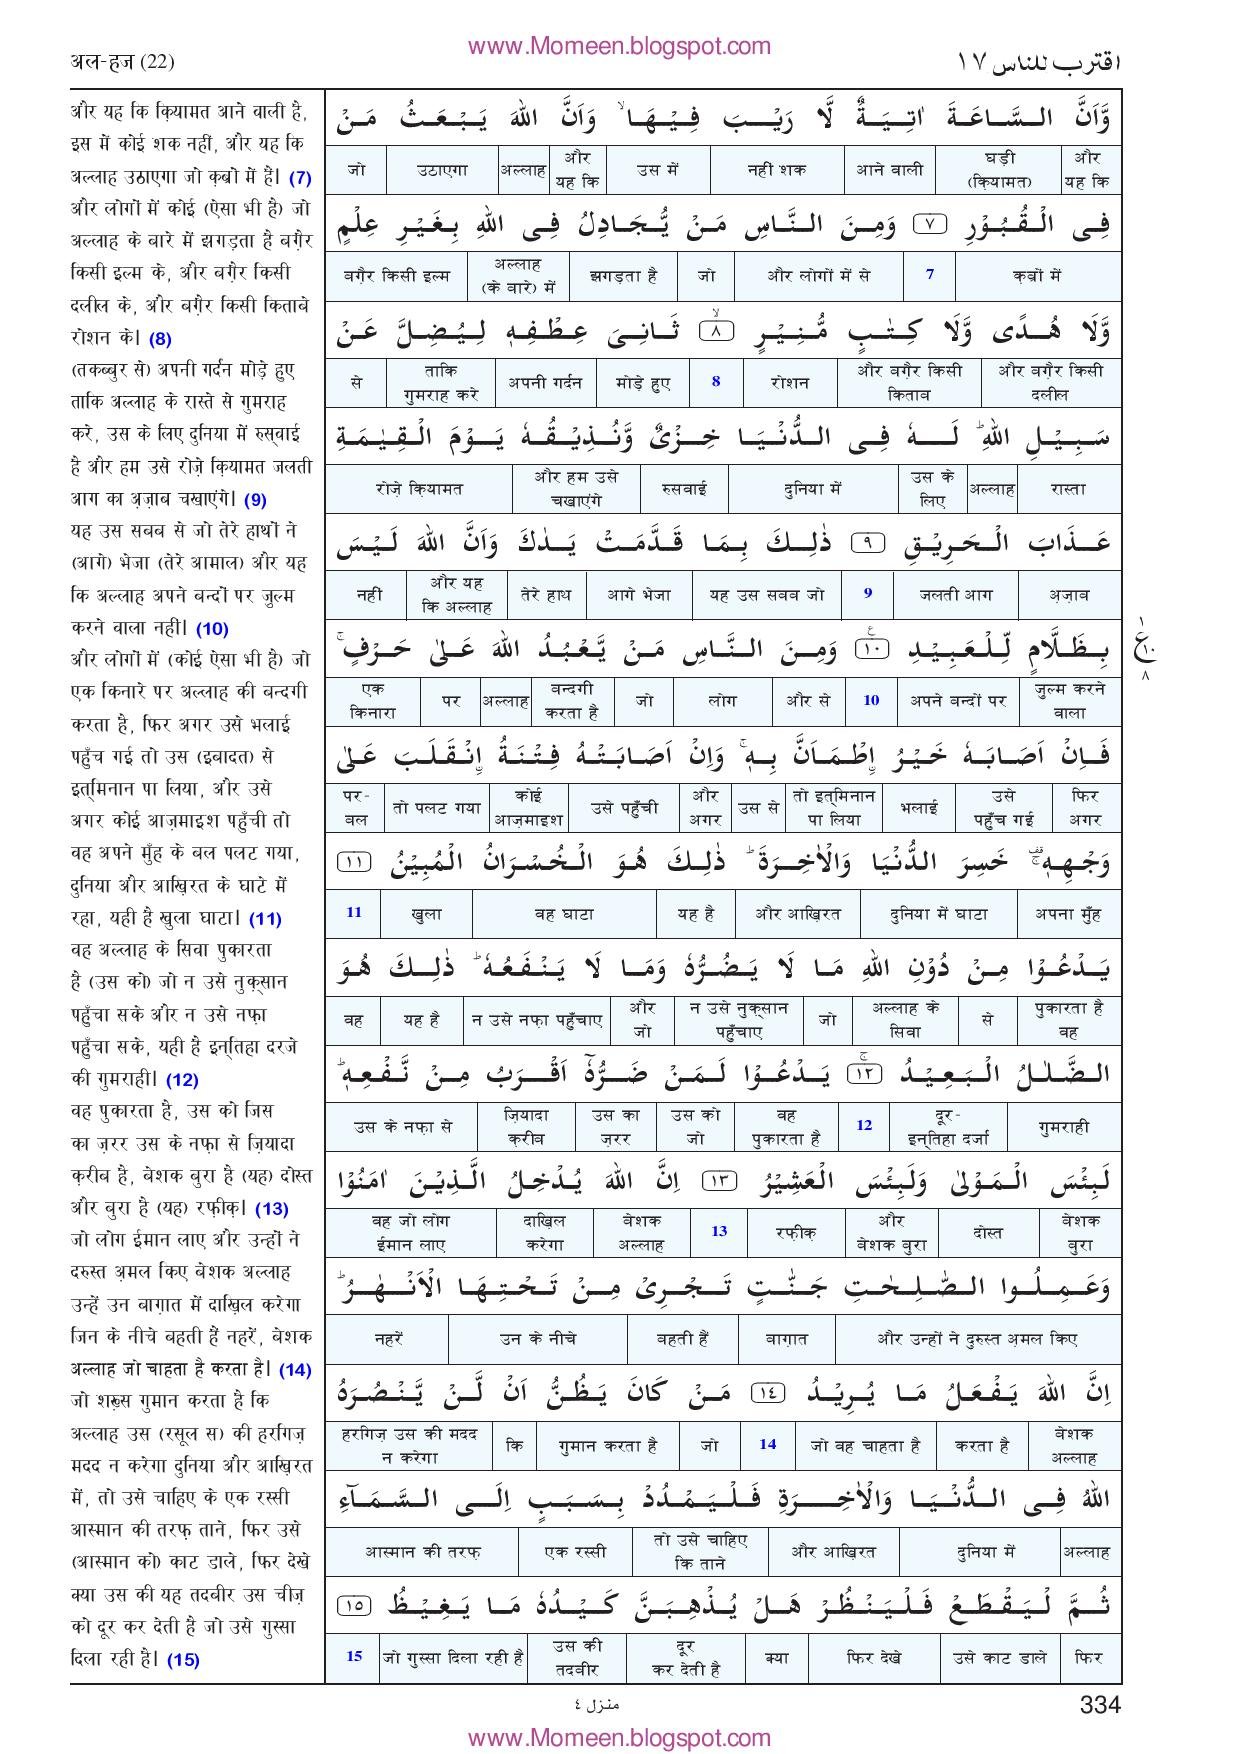 www.Momeen.blogspot.com
अल-हज (22)
اقترب للناس ١٧
और यह कि क़ियामत आने वाली है,
इस में कोई शक नहीं, और यह कि
अल्लाह उठाएगा जो क़ब्रों में हैं। (7)
और लोगों में कोई (ऐसा भी है) जो
अल्लाह के बारे में झगड़ता है बग़ैर
किसी इल्म के, और बग़ैर किसी
दलील के, और बग़ैर किसी किताबे
रोशन के। (8)
(तकब्बुर से) अपनी गर्दन मोड़े हुए
ताकि अल्लाह के रास्ते से गुमराह
करे, उस के लिए दुनिया में रुस्वाई
है और हम उसे रोज़े क़ियामत जलती
आग का अज़ाब चखाएंगे। (9)
यह उस सबब से जो तेरे हाथों ने
(आगे) भेजा (तेरे आमाल) और यह
कि अल्लाह अपने बन्दों पर ज़ुल्म
करने वाला नहीं। (10)
और लोगों में (कोई ऐसा भी है) जो
एक किनारे पर अल्लाह की बन्दगी
करता है, फिर अगर उसे भलाई
पहुँच गई तो उस (इबादत) से
इत्मिनान पा लिया, और उसे
अगर कोई आज़माइश पहुँची तो
वह अपने मुँह के बल पलट गया,
दुनिया और आख़िरत के घाटे में
रहा, यही है खुला घाटा। (11)
वह अल्लाह के सिवा पुकारता
है (उस को) जो न उसे नुक़्सान
पहुँचा सके और न उसे नफ़ा
पहुँचा सके, यही है इन्तिहा दरजे
की गुमराही। (12)
वह पुकारता है, उस को जिस
का ज़रर उस के नफ़ा से ज़ियादा
क़रीब है, बेशक बुरा है (यह) दोस्त
और बुरा है (यह) रफ़ीक़। (13)
जो लोग ईमान लाए और उन्हों ने
दरुस्त अ़मल किए बेशक अल्लाह
उन्हें उन बाग़ात में दाख़िल करेगा
जिन के नीचे बहती हैं नहरें, बेशक
अल्लाह जो चाहता है करता है। (14)
जो शख़्स गुमान करता है कि
अल्लाह उस (रसूल स) की हरगिज़
मदद न करेगा दुनिया और आख़िरत
में, तो उसे चाहिए के एक रस्सी
आस्मान की तरफ़ ताने, फिर उसे
(आस्मान को) काट डाले, फिर देखे
क्या उस की यह तदबीर उस चीज़
को दूर कर देती है जो उसे गुस्सा
दिला रही है। (15)
وَّاَنَّ السَّاعَةَ اٰتِيَةٌ لَّا رَيْبَ فِيْهَا ۙ وَاَنَّ اللّٰهَ يَبْعَثُ مَنْ
और यह कि घड़ी (क़ियामत) आने वाली नहीं शक उस में और यह कि अल्लाह उठाएगा जो
فِى الْقُبُوْرِ ٧ وَمِنَ النَّاسِ مَنْ يُّجَادِلُ فِى اللّٰهِ بِغَيْرِ عِلْمٍ
क़ब्रों में 7 और लोगों में से जो झगड़ता है अल्लाह (के बारे) में बग़ैर किसी इल्म
وَّلَا هُدًى وَّلَا كِتٰبٍ مُّنِيْرٍ ۙ ٨ ثَانِىَ عِطْفِهٖ لِيُضِلَّ عَنْ
और बग़ैर किसी दलील और बग़ैर किसी किताब रोशन 8 मोड़े हुए अपनी गर्दन ताकि गुमराह करे से
سَبِيْلِ اللّٰهِ ؕ لَهٗ فِى الدُّنْيَا خِزْىٌ وَّنُذِيْقُهٗ يَوْمَ الْقِيٰمَةِ
रास्ता अल्लाह उस के लिए दुनिया में रुसवाई और हम उसे चखाएंगे रोज़े क़ियामत
عَذَابَ الْحَرِيْقِ ٩ ذٰلِكَ بِمَا قَدَّمَتْ يَدٰكَ وَاَنَّ اللّٰهَ لَيْسَ
अ़ज़ाब जलती आग 9 यह उस सबब जो आगे भेजा तेरे हाथ और यह कि अल्लाह नहीं
بِظَلَّامٍ لِّلْعَبِيْدِ ١٠ ع وَمِنَ النَّاسِ مَنْ يَّعْبُدُ اللّٰهَ عَلٰى حَرْفٍ ۚ
١ ع ١٠ ٨
ज़ुल्म करने वाला अपने बन्दों पर 10 और से लोग जो बन्दगी करता है अल्लाह पर एक किनारा
فَاِنْ اَصَابَهٗ خَيْرُ ۨاطْمَاَنَّ بِهٖ ۚ وَاِنْ اَصَابَتْهُ فِتْنَةُ ۨانْقَلَبَ عَلٰى
फिर अगर उसे पहुँच गई भलाई तो इत्मिनान पा लिया उस से और अगर उसे पहुँची कोई आज़माइश तो पलट गया पर-बल
وَجْهِهٖ ۚ قف خَسِرَ الدُّنْيَا وَالْاٰخِرَةَ ؕ ذٰلِكَ هُوَ الْخُسْرَانُ الْمُبِيْنُ ١١
अपना मुँह दुनिया में घाटा और आख़िरत यह है वह घाटा खुला 11
يَدْعُوْا مِنْ دُوْنِ اللّٰهِ مَا لَا يَضُرُّهٗ وَمَا لَا يَنْفَعُهٗ ؕ ذٰلِكَ هُوَ
पुकारता है वह से अल्लाह के सिवा जो न उसे नुक़्सान पहुँचाए और जो न उसे नफ़ा पहुँचाए यह है वह
الضَّلٰلُ الْبَعِيْدُ ۚ ١٢ يَدْعُوْا لَمَنْ ضَرُّهٗٓ اَقْرَبُ مِنْ نَّفْعِهٖ ؕ
गुमराही दूर-इन्तिहा दर्जा 12 वह पुकारता है उस को जो उस का ज़रर ज़ियादा क़रीब उस के नफ़ा से
لَبِئْسَ الْمَوْلٰى وَلَبِئْسَ الْعَشِيْرُ ١٣ اِنَّ اللّٰهَ يُدْخِلُ الَّذِيْنَ اٰمَنُوْا
बेशक बुरा दोस्त और बेशक बुरा रफ़ीक़ 13 बेशक अल्लाह दाख़िल करेगा वह जो लोग ईमान लाए
وَعَمِلُوا الصّٰلِحٰتِ جَنّٰتٍ تَجْرِىْ مِنْ تَحْتِهَا الْاَنْهٰرُ ؕ
और उन्हों ने दुरुस्त अ़मल किए बाग़ात बहती हैं उन के नीचे नहरें
اِنَّ اللّٰهَ يَفْعَلُ مَا يُرِيْدُ ١٤ مَنْ كَانَ يَظُنُّ اَنْ لَّنْ يَّنْصُرَهُ
बेशक अल्लाह करता है जो वह चाहता है 14 जो गुमान करता है कि हरगिज़ उस की मदद न करेगा
اللّٰهُ فِى الدُّنْيَا وَالْاٰخِرَةِ فَلْيَمْدُدْ بِسَبَبٍ اِلَى السَّمَآءِ
अल्लाह दुनिया में और आख़िरत तो उसे चाहिए कि ताने एक रस्सी आस्मान की तरफ़
ثُمَّ لْيَقْطَعْ فَلْيَنْظُرْ هَلْ يُذْهِبَنَّ كَيْدُهٗ مَا يَغِيْظُ ١٥
फिर उसे काट डाले फिर देखे क्या दूर कर देती है उस की तदबीर जो गुस्सा दिला रही है 15
منزل ٤
334
www.Momeen.blogspot.com